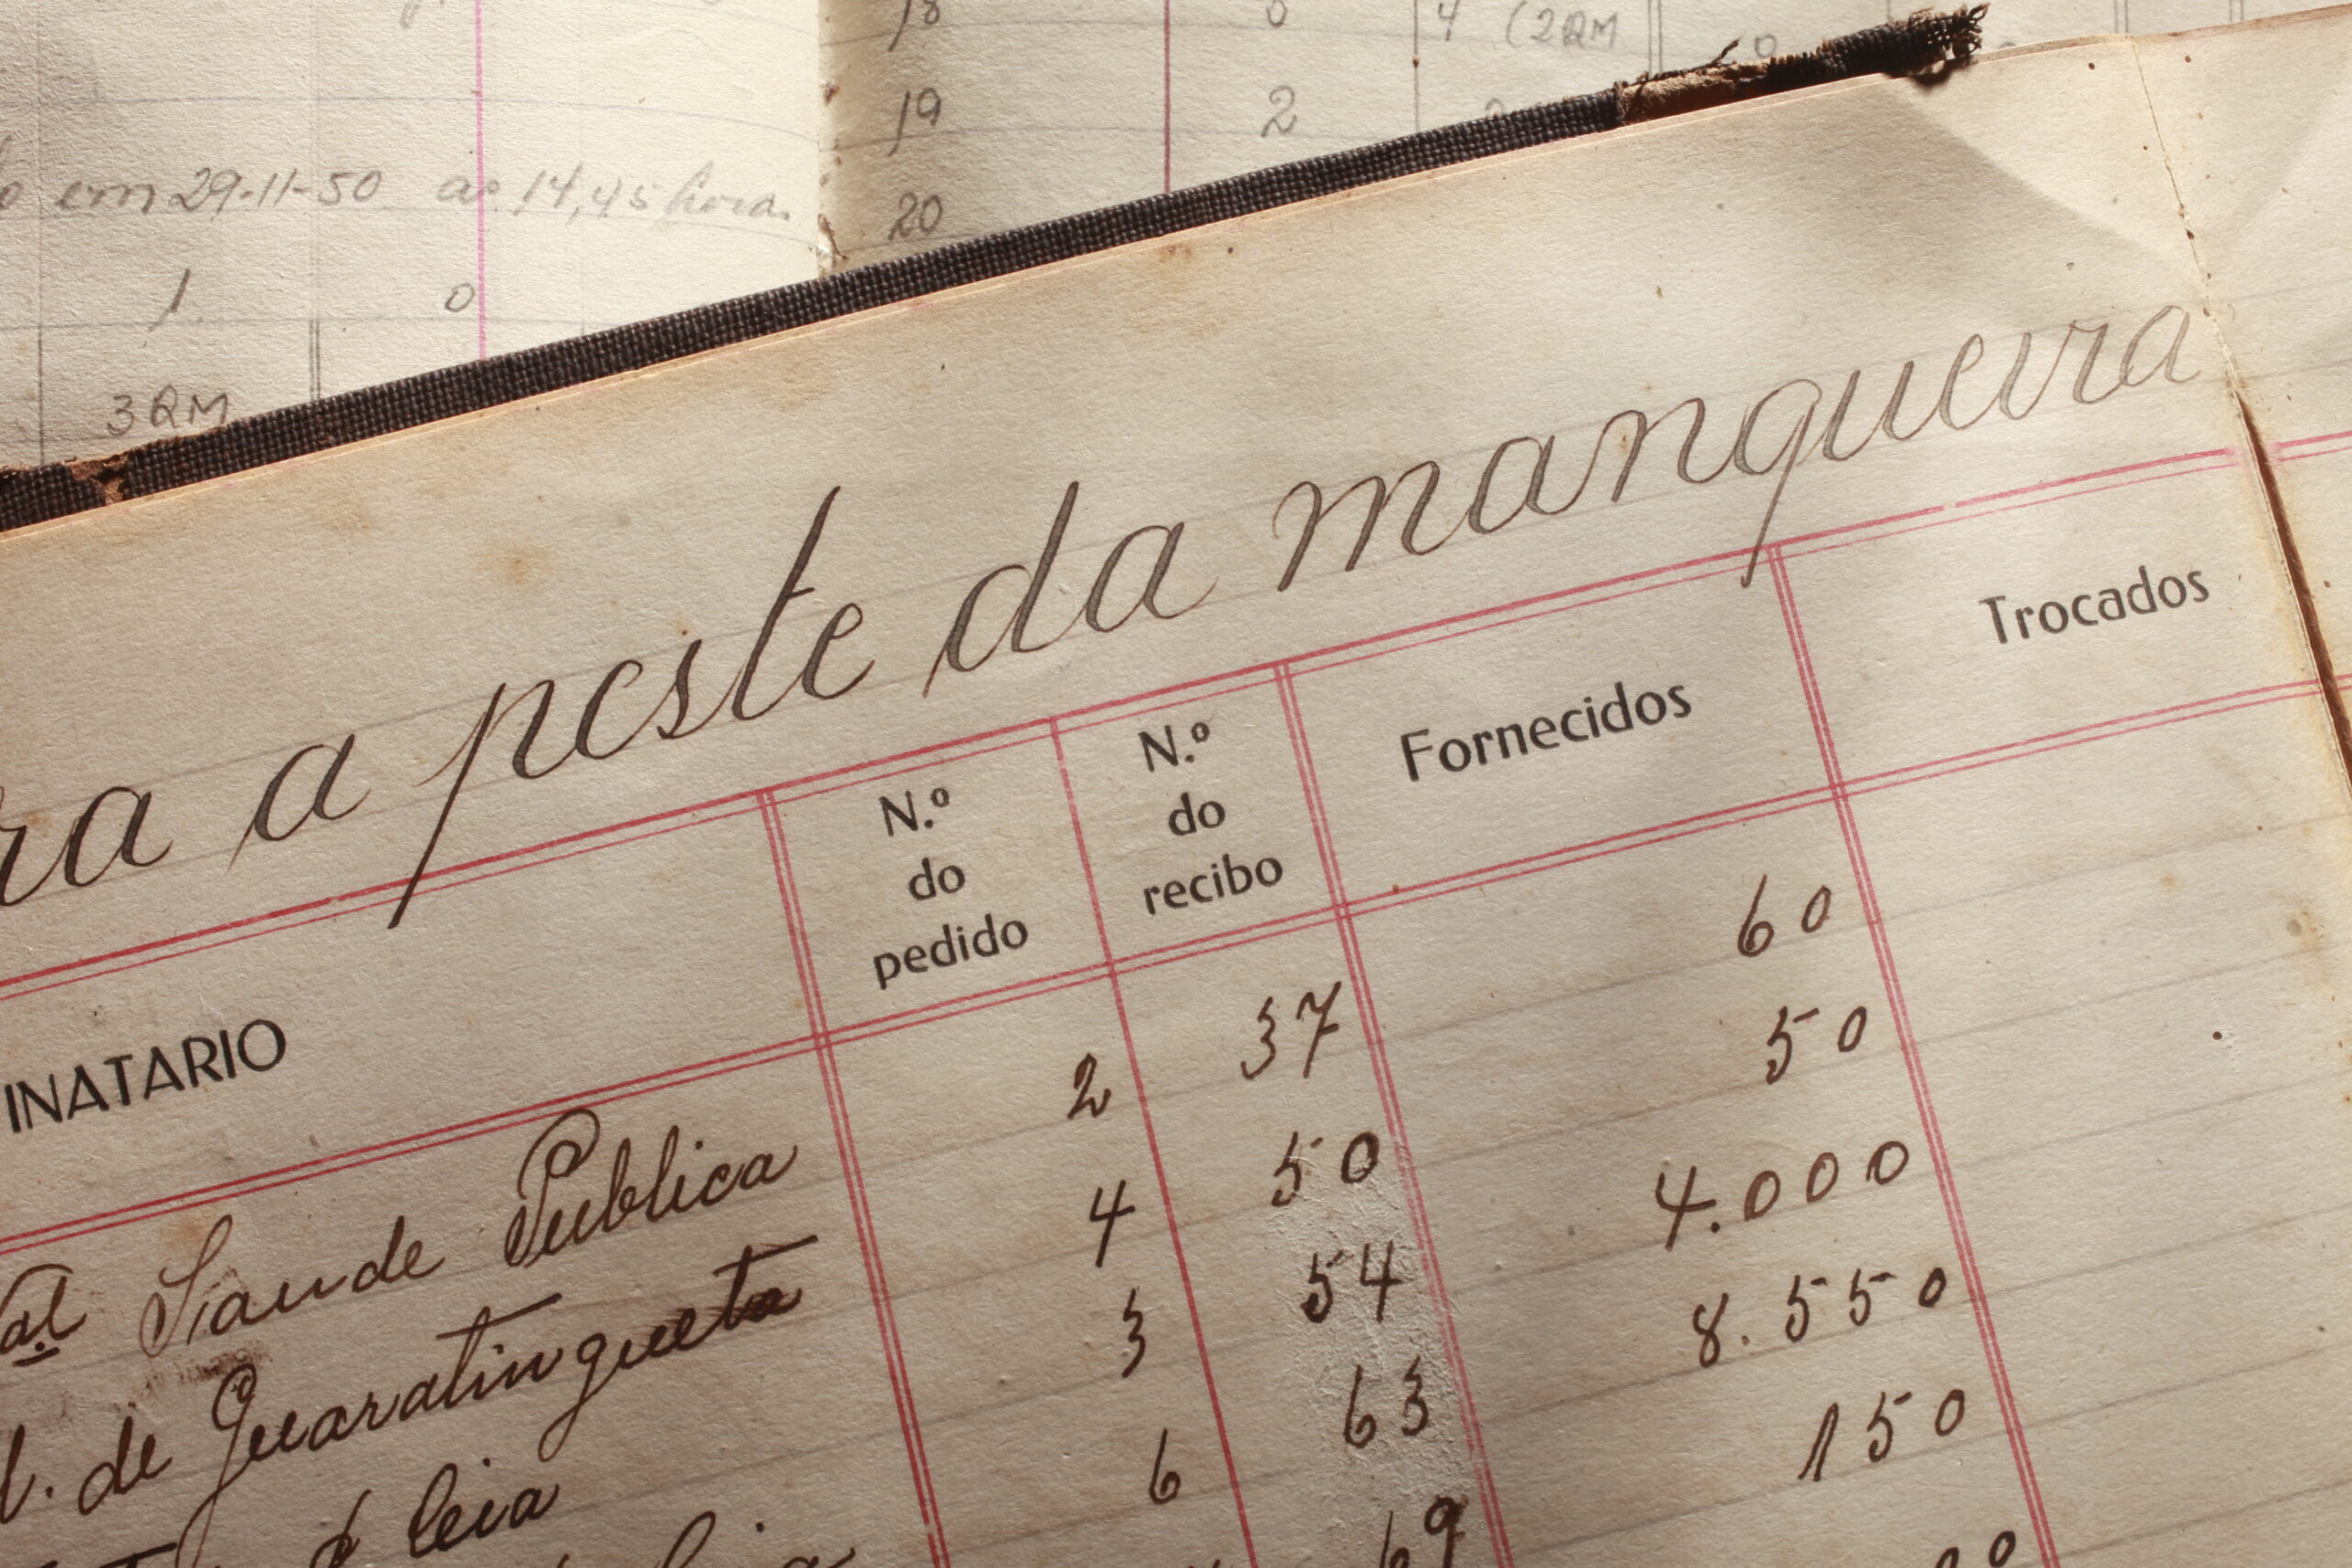 18 0 4 (2RM
19 2
em 29-11-50 as 14,45 horas
20
1 0
3RM
ra a peste da mangueira
INATARIO N.º do pedido N.º do recibo Fornecidos Trocados
al. Saude Publica 2 37 60
de Guaratingueta 4 50 50
leia 3 54 4.000
6 63 8.550
69 150